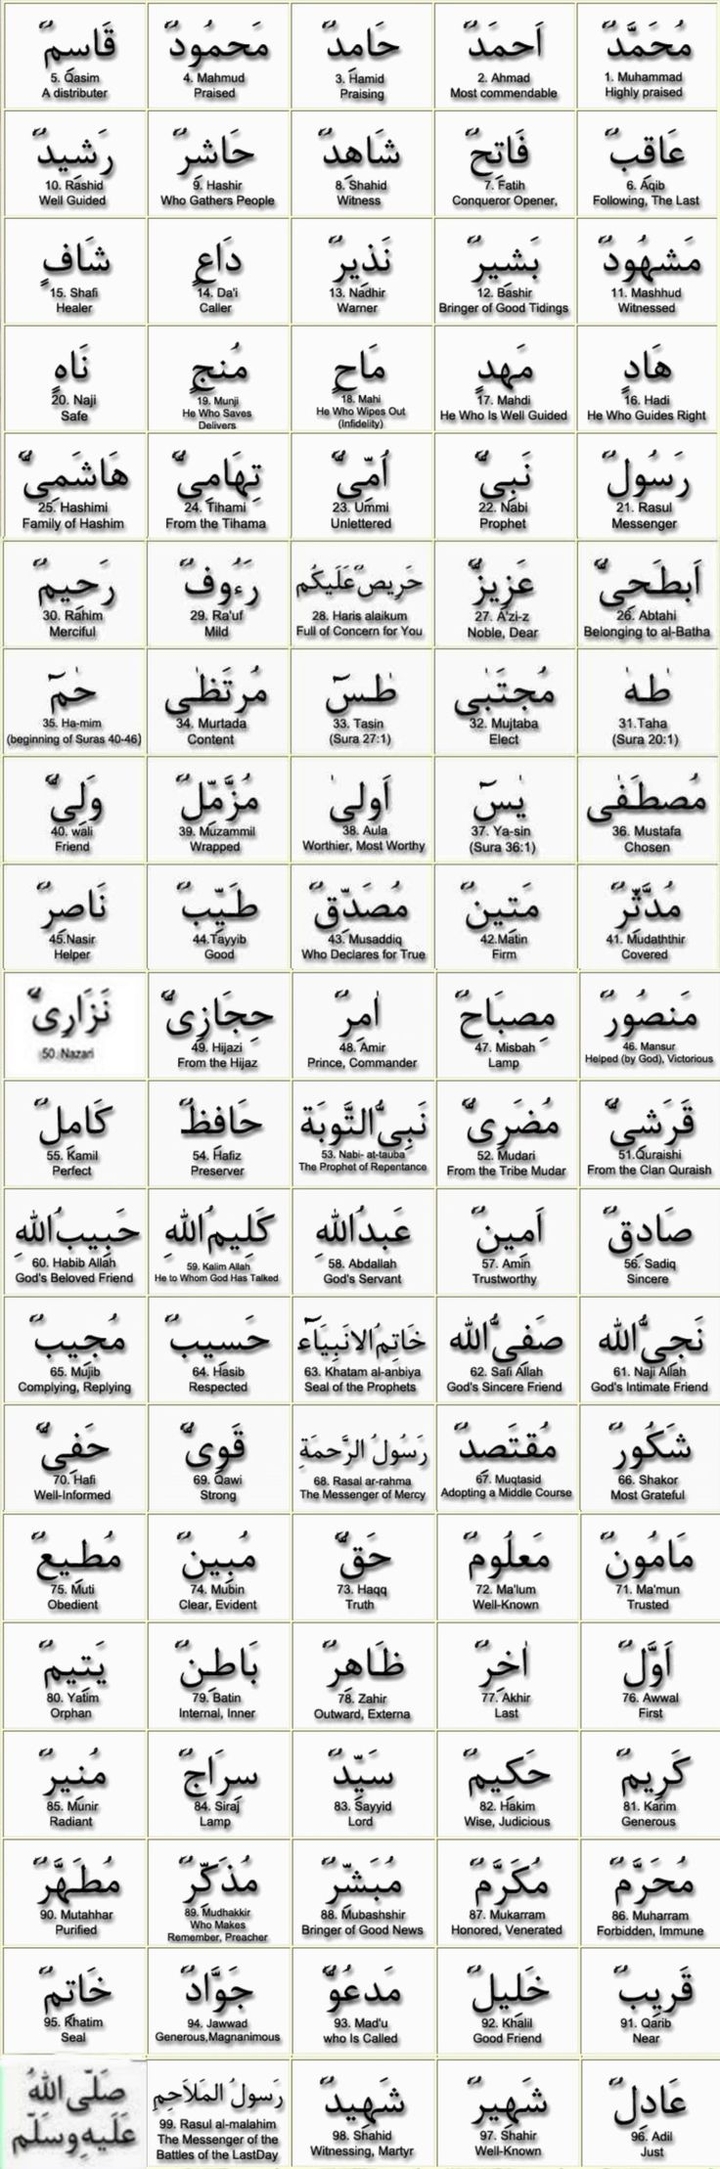 مُحَمَّدٌ
1. Muhammad
Highly praised
اَحمَدٌ
2. Ahmad
Most commendable
حَامِدٌ
3. Hamid
Praising
مَحمُودٌ
4. Mahmud
Praised
قَاسِمٌ
5. Qasim
A distributer
عَاقِبٌ
6. Aqib
Following, The Last
فَاتِحٌ
7. Fatih
Conqueror Opener,
شَاهِدٌ
8. Shahid
Witness
حَاشِرٌ
9. Hashir
Who Gathers People
رَشِيدٌ
10. Rashid
Well Guided
مَشهُودٌ
11. Mashhud
Witnessed
بَشِيرٌ
12. Bashir
Bringer of Good Tidings
نَذِيرٌ
13. Nadhir
Warner
دَاعٍ
14. Da'i
Caller
شَافٍ
15. Shafi
Healer
هَادٍ
16. Hadi
He Who Guides Right
مَهدٍ
17. Mahdi
He Who Is Well Guided
مَاحٍ
18. Mahi
He Who Wipes Out
(Infidelity)
مُنجٍ
19. Munji
He Who Saves
Delivers
نَاهٍ
20. Naji
Safe
رَسُولٌ
21. Rasul
Messenger
نَبِىٌّ
22. Nabi
Prophet
اُمِّىٌّ
23. Ummi
Unlettered
تِهَامِىٌّ
24. Tihami
From the Tihama
هَاشَمِىٌّ
25. Hashimi
Family of Hashim
اَبطَحِىٌّ
26. Abtahi
Belonging to al-Batha
عَزِيزٌ
27. A'zi-z
Noble, Dear
حَرِيصٌ عَلَيكُم
28. Haris alaikum
Full of Concern for You
رَءُوفٌ
29. Ra'uf
Mild
رَحِيمٌ
30. Rahim
Merciful
طٰهٰ
31.Taha
(Sura 20:1)
مُجتَبٰى
32. Mujtaba
Elect
طٰسٓ
33. Tasin
(Sura 27:1)
مُرتَظٰى
34. Murtada
Content
حٰمٓ
35. Ha-mim
(beginning of Suras 40-46)
مُصطَفٰى
36. Mustafa
Chosen
يٰسٓ
37. Ya-sin
(Sura 36:1)
اَولىٰ
38. Aula
Worthier, Most Worthy
مُزَّمِّلٌ
39. Muzammil
Wrapped
وَلِىٌّ
40. wali
Friend
مُدَّثِّرٌ
41. Mudaththir
Covered
مَتِينٌ
42.Matin
Firm
مُصَدِّقٌ
43. Musaddiq
Who Declares for True
طَيِّبٌ
44.Tayyib
Good
نَاصِرٌ
45.Nasir
Helper
مَنصُورٌ
46. Mansur
Helped (by God), Victorious
مِصبَاحٌ
47. Misbah
Lamp
اٰمِرٌ
48. Amir
Prince, Commander
حِجَازِىٌّ
49. Hijazi
From the Hijaz
نَزَارِىٌّ
50. Nazari
قَرَشِىٌّ
51.Quraishi
From the Clan Quraish
مُضَرِىٌّ
52. Mudari
From the Tribe Mudar
نَبِىُّ التَّوبَة
53. Nabi- at-tauba
The Prophet of Repentance
حَافِظٌ
54. Hafiz
Preserver
كَامِلٌ
55. Kamil
Perfect
صَادِقٌ
56. Sadiq
Sincere
اَمِينٌ
57. Amin
Trustworthy
عَبدُ اللهِ
58. Abdallah
God's Servant
كَلِيمُ اللهِ
59. Kalim Allah
He to Whom God Has Talked
حَبِيبُ اللهِ
60. Habib Allah
God's Beloved Friend
نَجِىُّ الله
61. Naji Allah
God's Intimate Friend
صَفِىُّ الله
62. Safi Allah
God's Sincere Friend
خَاتِمُ الانبِيَآء
63. Khatam al-anbiya
Seal of the Prophets
حَسِيبٌ
64. Hasib
Respected
مُجِيبٌ
65. Mujib
Complying, Replying
شَكُورٌ
66. Shakor
Most Grateful
مُقتَصِدٌ
67. Muqtasid
Adopting a Middle Course
رَسُولُ الرَّحمَةِ
68. Rasal ar-rahma
The Messenger of Mercy
قَوِىٌّ
69. Qawi
Strong
حَفِىٌّ
70. Hafi
Well-Informed
مَامُونٌ
71. Ma'mun
Trusted
مَعلُومٌ
72. Ma'lum
Well-Known
حَقٌّ
73. Haqq
Truth
مُبِينٌ
74. Mubin
Clear, Evident
مُطِيعٌ
75. Muti
Obedient
اَوَّلٌ
76. Awwal
First
اٰخِرٌ
77. Akhir
Last
ظَاهِرٌ
78. Zahir
Outward, Externa
بَاطِنٌ
79. Batin
Internal, Inner
يَتِيمٌ
80. Yatim
Orphan
كَرِيمٌ
81. Karim
Generous
حَكِيمٌ
82. Hakim
Wise, Judicious
سَيِّدٌ
83. Sayyid
Lord
سِرَاجٌ
84. Siraj
Lamp
مُنِيرٌ
85. Munir
Radiant
مُحَرَّمٌ
86. Muharram
Forbidden, Immune
مُكَرَّمٌ
87. Mukarram
Honored, Venerated
مُبَشِّرٌ
88. Mubashshir
Bringer of Good News
مُذَكِّرٌ
89. Mudhakkir
Who Makes
Remember, Preacher
مُطَهَّرٌ
90. Mutahhar
Purified
قَرِيبٌ
91. Qarib
Near
خَلِيلٌ
92. Khalil
Good Friend
مَدعُوٌّ
93. Mad'u
who Is Called
جَوَّادٌ
94. Jawwad
Generous,Magnanimous
خَاتِمٌ
95. Khatim
Seal
عَادِلٌ
96. Adil
Just
شَهِيرٌ
97. Shahir
Well-Known
شَهِيدٌ
98. Shahid
Witnessing, Martyr
رَسُولُ المَلَاحِمِ
99. Rasul al-malahim
The Messenger of the
Battles of the LastDay
صَلَّى اللهُ
عَلَيهِ وسَلَّم